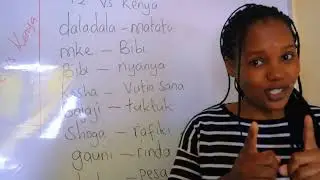 Vs Kenya
daladala — matatu
mke — Bibi
Bibi — nyanya
Kesha — Vutia Sana
Bajaji — tuktuk
Shoga — rafiki
gauni — rinda
pesa